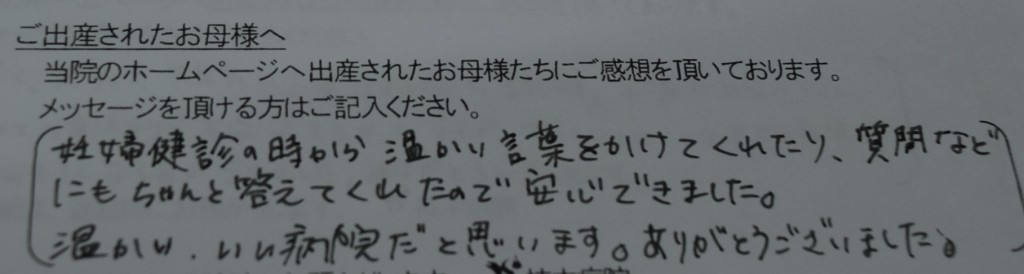 ご出産されたお母様へ
当院のホームページへ出産されたお母様たちにご感想を頂いております。
メッセージを頂ける方はご記入ください。
妊婦健診の時から 温かい言葉をかけてくれたり、質問など
にもちゃんと答えてくれたので安心できました。
温かい、いい病院だと思います。ありがとうございました。